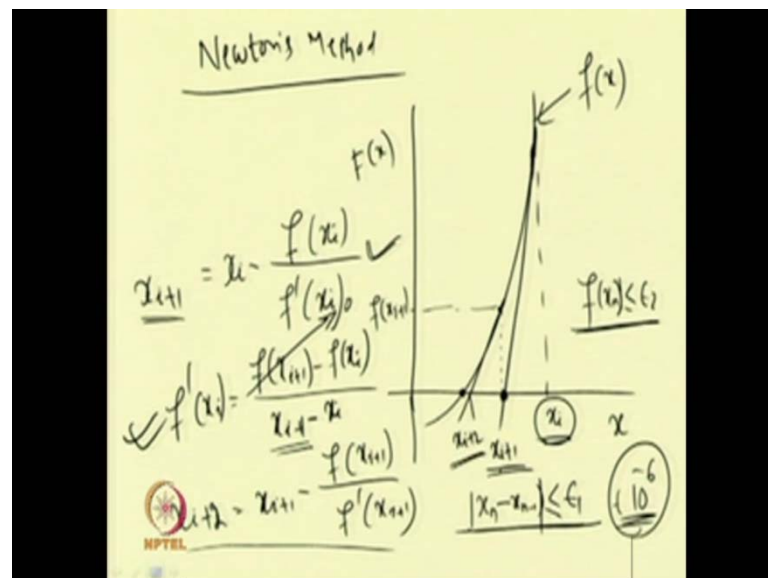 Newton's Method
f(x)
F(x)
x_{i+1} = x_i - f(x_i) / f'(x_i)
f(x_{i+1})
f(x_n) ≤ ε_2
f'(x_i) = f(x_{i+1}) - f(x_i) / x_{i+1} - x_i
0
x_{i+2} x_{i+1} x_i x
x_{i+2} = x_{i+1} - f(x_{i+1}) / f'(x_{i+1})
|x_n - x_{n-1}| ≤ ε_1
10^{-6}
NPTEL